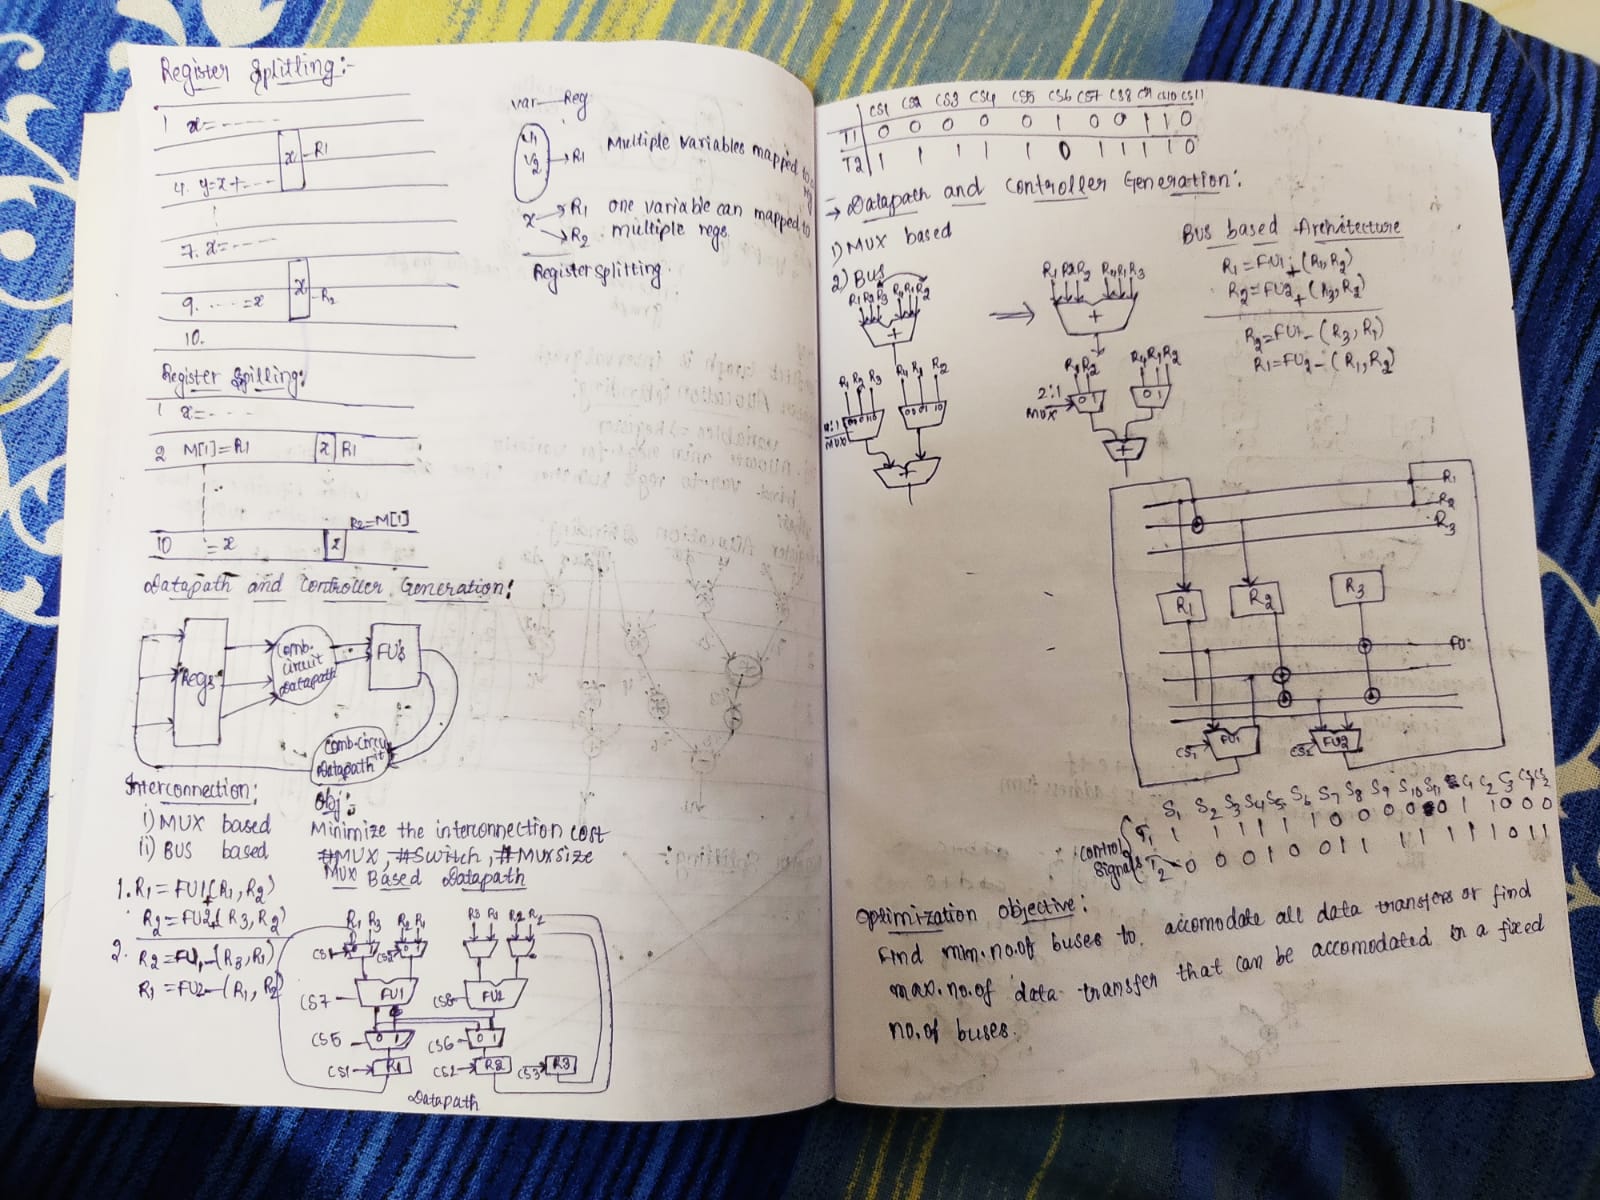 Register Splitling:-
1 x=-----
x R1
4. y=x+----
7. x=----
x R2
9. ----=x
10.
var—Reg
V1
V2 → R1 Multiple variables mapped to
x → R1 one variable can mapped to
→ R2 multiple regs.
Register splitting.
Register Spilling:
1 x=----
2 M[1]=R1 x R1
R2=M[1]
10 =x x
Datapath and Controller Generation:
Regs
Comb.
circuit
Datapath
FU's
Comb.circu
it
Datapath
Interconnection:
i) MUX based
ii) BUS based
Obj:-
Minimize the interconnection cost
#MUX, #Switch, #Muxsize
MUX Based Datapath
1. R1 = FU1+(R1, R2)
R2 = FU2+(R3, R2)
2. R2 = FU1-(R3, R1)
R1 = FU2-(R1, R2)
R1 R3 R2 R1 R3 R1 R2 R2
0 1
CS7 FU1 CS8 FU2
CS5 0 1 CS6 0 1
CS1 R1 CS2 R2 CS3 R3
Datapath
CS1 CS2 CS3 CS4 CS5 CS6 CS7 CS8 C9 CS10 CS11
T1 0 0 0 0 0 1 0 0 1 1 0
T2 1 1 1 1 1 0 1 1 1 1 0
→ Datapath and Controller Generation:
1) MUX based
2) BUS
R1 R2 R3 R4 R1 R2
+
R1 R2 R3 R4 R1 R2
4:1
MUX
00 01 10
+
⇒
R1 R2 R2 R4 R1 R3
+
R3 R2 R4 R1 R2
2:1
MUX
0 1 0 1
+
BUS based Architecture
R1 = FU1+(R1, R2)
R2 = FU2+(R3, R2)
R2 = FU1-(R3, R1)
R1 = FU2-(R1, R2)
R1
R2
R3
R1 R2 R3
FU
CS1 FU1 CS2 FU2
S1 S2 S3 S4 S5 S6 S7 S8 S9 S10 S11 C1 C2 C3
Control T1 1 1 1 1 1 1 0 0 0 0 0 1 1 0 0 0
Signals T2 0 0 0 1 0 0 1 1 1 1 1 1 1 0 1 1
Optimization Objective:
Find min.no.of buses to accomodate all data transfers or find
max.no.of data transfer that can be accomodated in a fixed
no.of buses.